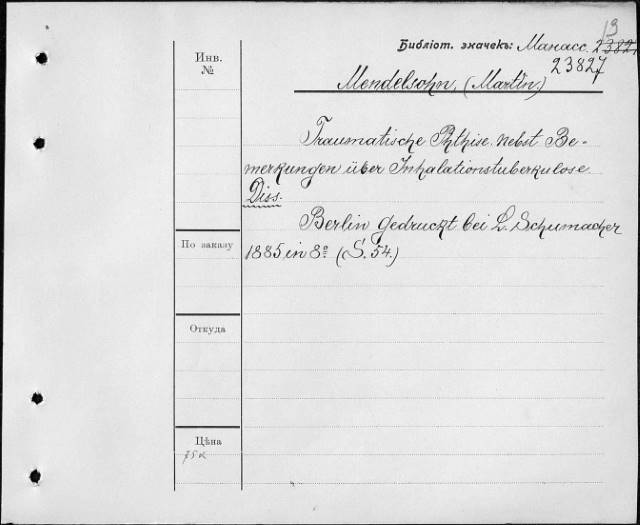 13
Библіот. значекъ: Манасс. 23827
23827
Инв.
№
Mendelsohn, (Martin.)
Traumatische Phthise nebst Be-
merkungen über Inhalationstuberkulose
Diss.
Berlin gedruckt bei L. Schumacher
1885 in 8º (S. 54.)
По заказу
Откуда
Цѣна
75 к